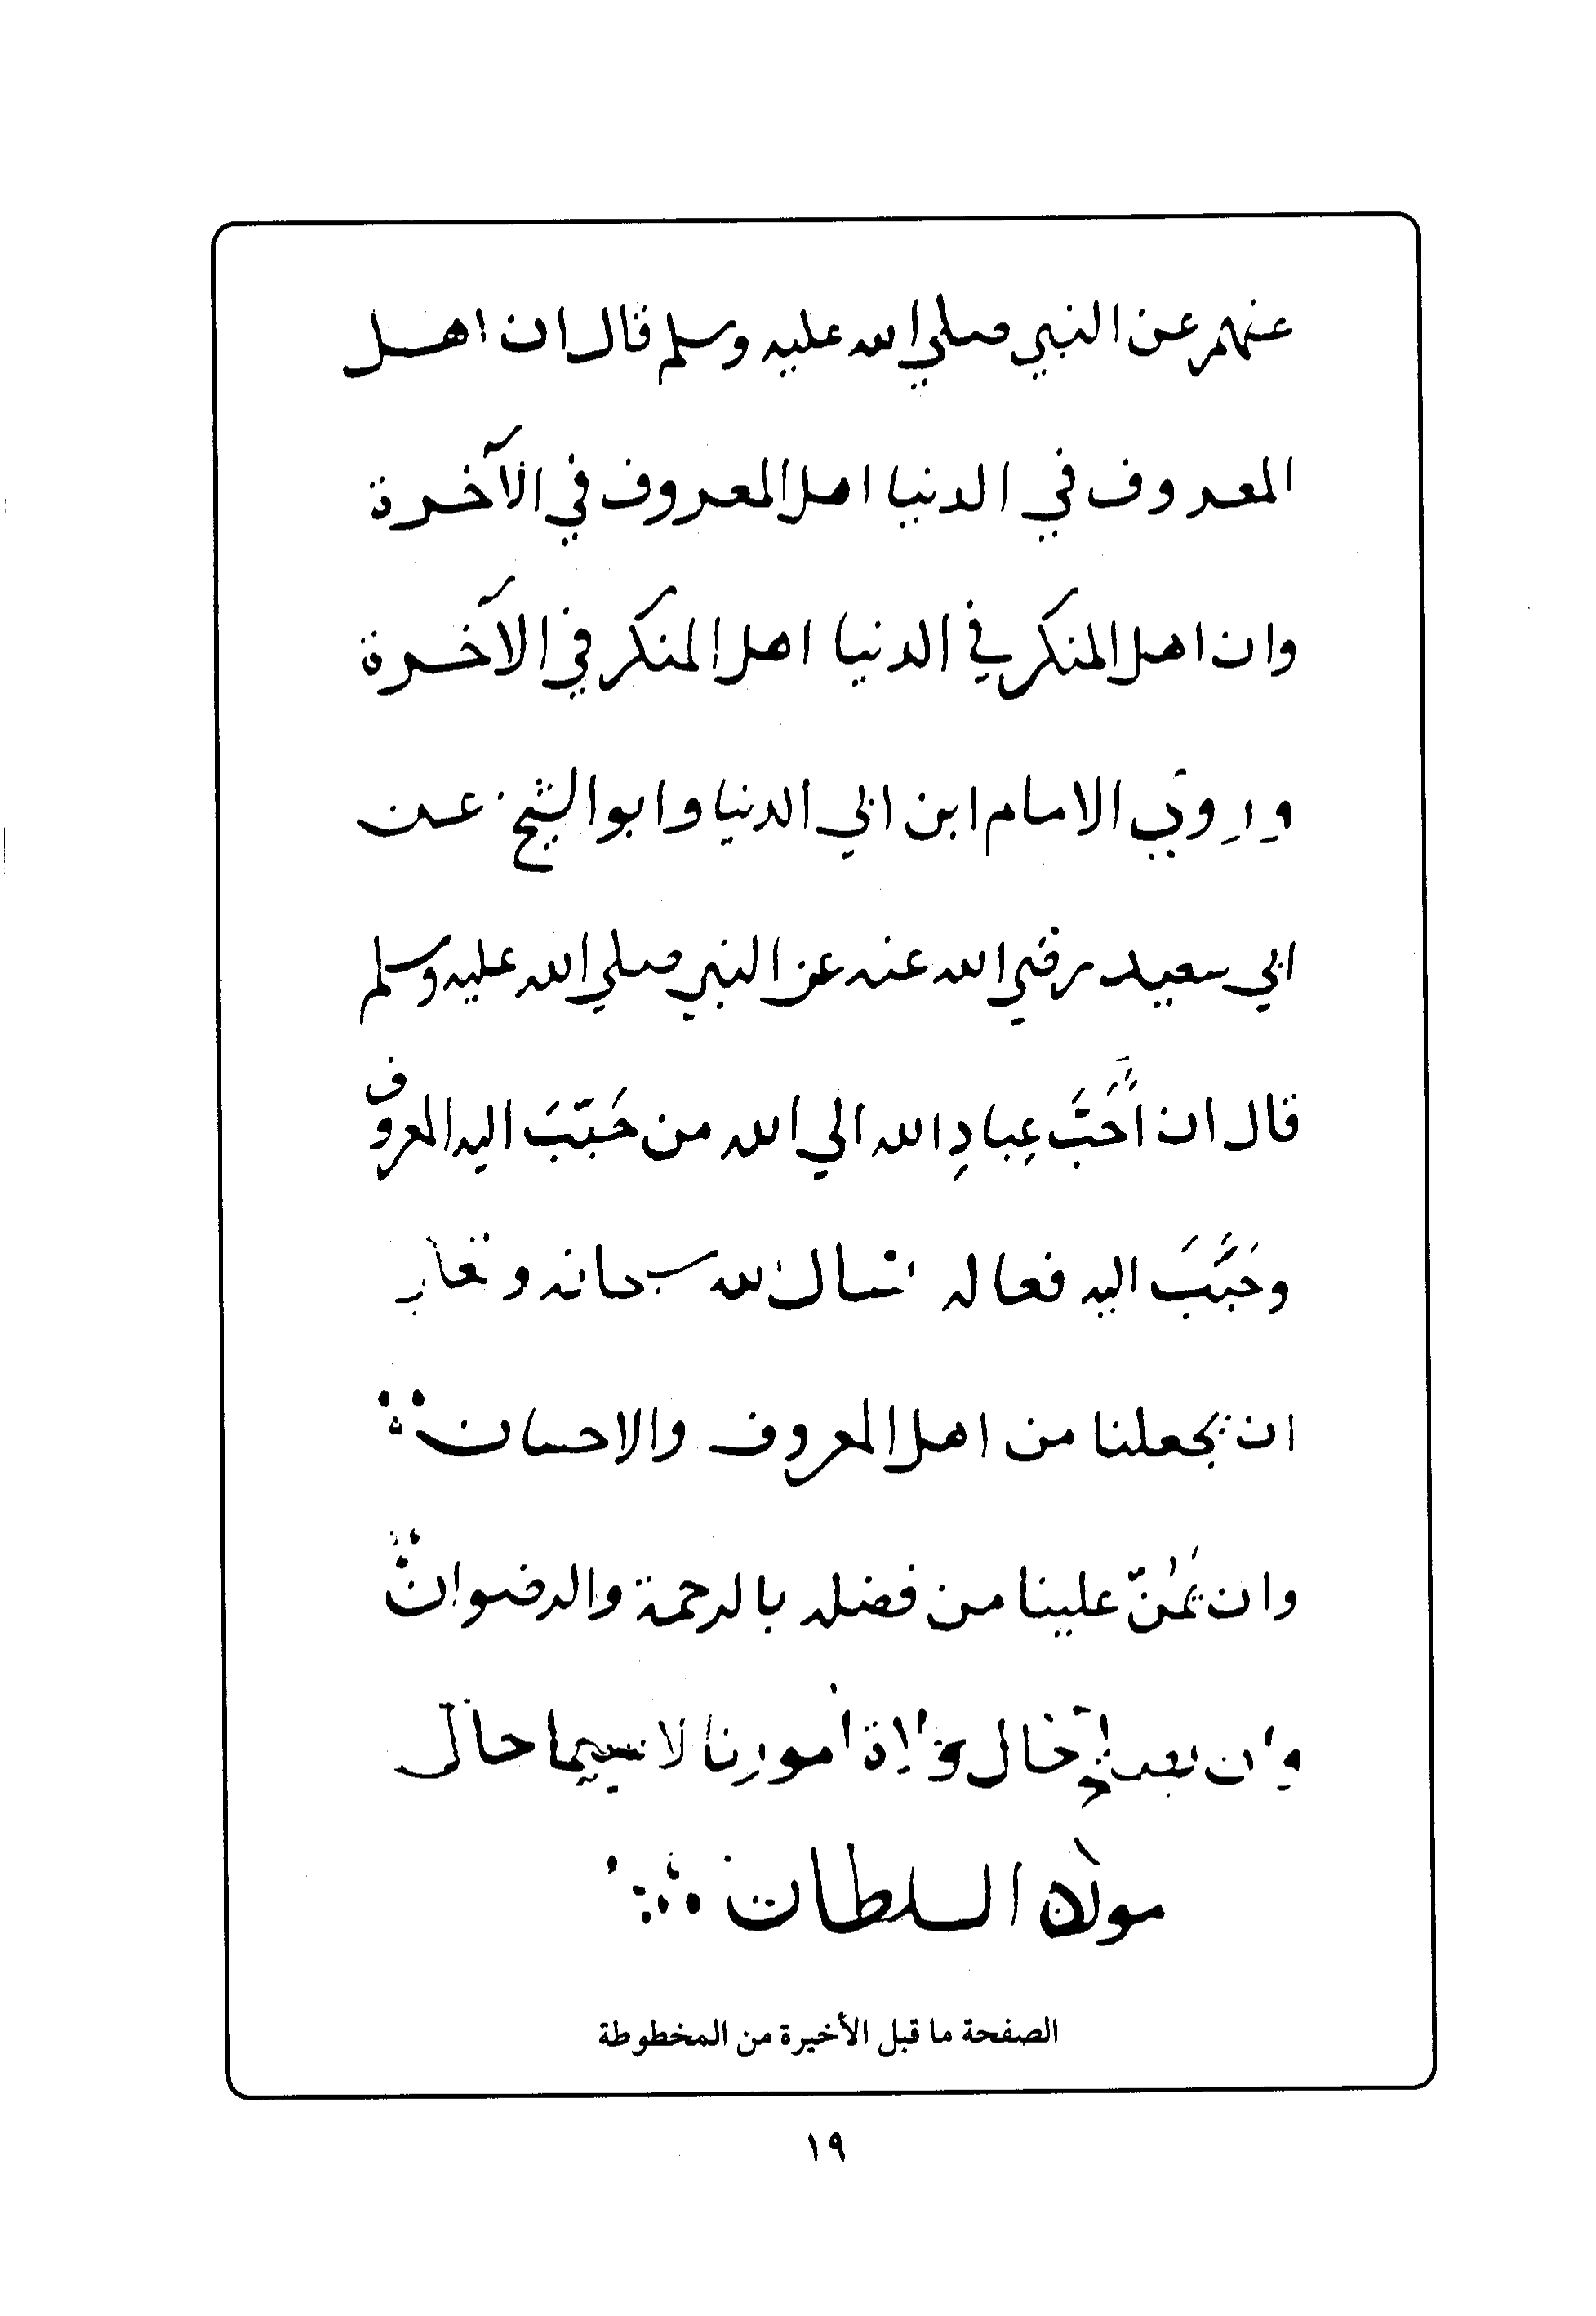 عنهم عن النبي صلي الله عليه وسلم قال ان اهل
المعروف في الدنيا اهل المعروف في الآخرة
وان اهل المنكر في الدنيا اهل المنكر في الآخرة
وروي الامام ابن ابي الدنيا وابو الشيخ عن
ابي سعيد رضي الله عنه عن النبي صلي الله عليه وسلم
قال ان أَحَبَّ عِبادِ الله الي الله من حَبَّبَ اليه المعروف
وحَبَّبَ اليه فعاله نسال الله سبحانه وتعالي
ان يجعلنا من اهل المعروف والاحسان
وان يَمُنّ علينا من فضله بالرحمة والرضوان
وان حال ولاة أمورنا لا سيما حال
مولانا السلطان
الصفحة ما قبل الأخيرة من المخطوطة
١٩